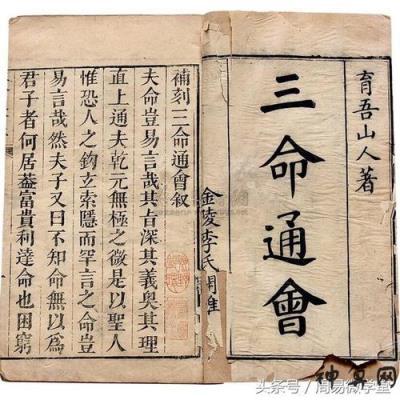 育吾山人著
三命通會
金陵李氏
補刻三命通會叙
夫命豈易言哉其旨深其義奧其理
直上通夫乾元無極之微是以聖人
惟恐人之鉤玄索隱而罕言之命豈
易言哉然夫子又曰不知命無以爲
君子者何居葢富貴利達命也困窮
头条号 / 周易微学堂